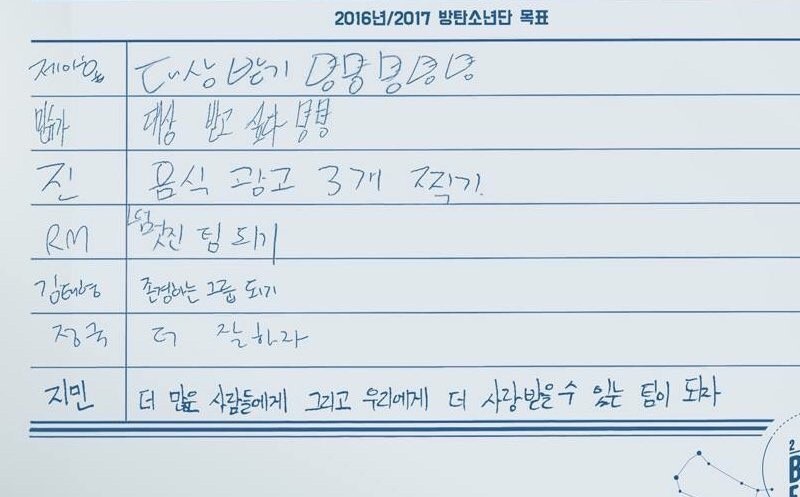 2016년/2017 방탄소년단 목표
제이홉 대상 받기
민슈가 대상 받고 싶다
진 음식 광고 3개 찍기.
RM 더 멋진 팀 되기
김태형 존경하는 그룹 되기
정국 더 잘하자
지민 더 많은 사람들에게 그리고 우리에게 더 사랑받을 수 있는 팀이 되자
2
B